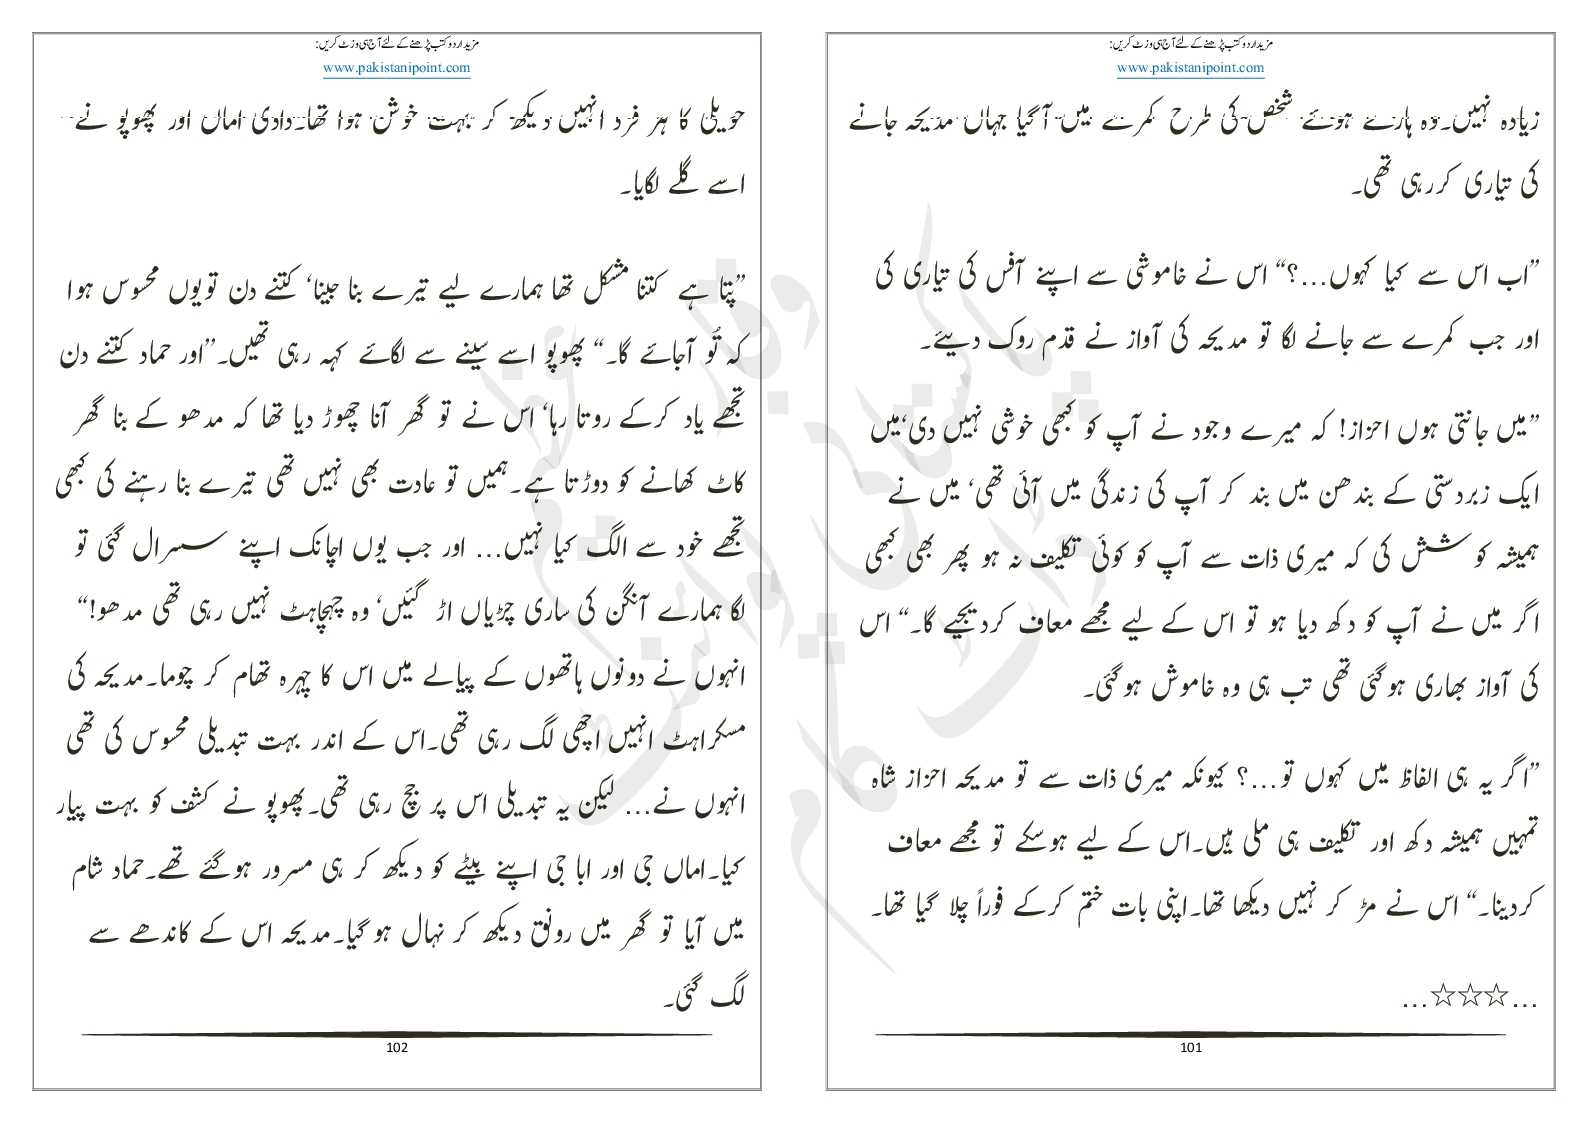 مزید اردو کتب پڑھنے کے لئے آج ہی وزٹ کریں:
www.pakistanipoint.com
زیادہ نہیں۔وہ ہارے ہوئے شخص کی طرح کمرے میں آگیا جہاں مدیحہ جانے
کی تیاری کررہی تھی۔
”اب اس سے کیا کہوں...؟“ اس نے خاموشی سے اپنے آفس کی تیاری کی
اور جب کمرے سے جانے لگا تو مدیحہ کی آواز نے قدم روک دیئے۔
”میں جانتی ہوں احزاز! کہ میرے وجود نے آپ کو کبھی خوشی نہیں دی‘میں
ایک زبردستی کے بندھن میں بند کر آپ کی زندگی میں آئی تھی‘ میں نے
ہمیشہ کوشش کی کہ میری ذات سے آپ کو کوئی تکلیف نہ ہو پھر بھی کبھی
اگر میں نے آپ کو دکھ دیا ہو تو اس کے لیے مجھے معاف کردیجیے گا۔“ اس
کی آواز بھاری ہوگئی تھی تب ہی وہ خاموش ہوگئی۔
”اگر یہ ہی الفاظ میں کہوں تو...؟ کیونکہ میری ذات سے تو مدیحہ احزاز شاہ
تمہیں ہمیشہ دکھ اور تکلیف ہی ملی ہیں۔اس کے لیے ہوسکے تو مجھے معاف
کردینا۔“ اس نے مڑ کر نہیں دیکھا تھا۔اپنی بات ختم کرکے فوراً چلا گیا تھا۔
...☆☆☆...
101
مزید اردو کتب پڑھنے کے لئے آج ہی وزٹ کریں:
www.pakistanipoint.com
حویلی کا ہر فرد انہیں دیکھ کر بہت خوش ہوا تھا۔دادی اماں اور پھوپو نے
اسے گلے لگایا۔
”پتا ہے کتنا مشکل تھا ہمارے لیے تیرے بنا جینا‘ کتنے دن تویوں محسوس ہوا
کہ تُو آجائے گا۔“ پھوپو اسے سینے سے لگائے کہہ رہی تھیں۔”اور حماد کتنے دن
تجھے یاد کرکے روتا رہا‘ اس نے تو گھر آنا چھوڑ دیا تھا کہ مدھو کے بنا گھر
کاٹ کھانے کو دوڑتا ہے۔ہمیں تو عادت بھی نہیں تھی تیرے بنا رہنے کی کبھی
تجھے خود سے الگ کیا نہیں... اور جب یوں اچانک اپنے سسرال گئی تو
لگا ہمارے آنگن کی ساری چڑیاں اڑ گئیں‘ وہ چہچاہٹ نہیں رہی تھی مدھو!“
انہوں نے دونوں ہاتھوں کے پیالے میں اس کا چہرہ تھام کر چوما۔مدیحہ کی
مسکراہٹ انہیں اچھی لگ رہی تھی۔اس کے اندر بہت تبدیلی محسوس کی تھی
انہوں نے... لیکن یہ تبدیلی اس پر جچ رہی تھی۔پھوپو نے کشف کو بہت پیار
کیا۔اماں جی اور ابا جی اپنے بیٹے کو دیکھ کر ہی مسرور ہوگئے تھے۔حماد شام
میں آیا تو گھر میں رونق دیکھ کر نہال ہوگیا۔مدیحہ اس کے کاندھے سے
لگ گئی۔
102
پاکستانی پوائنٹ ڈاٹ کام